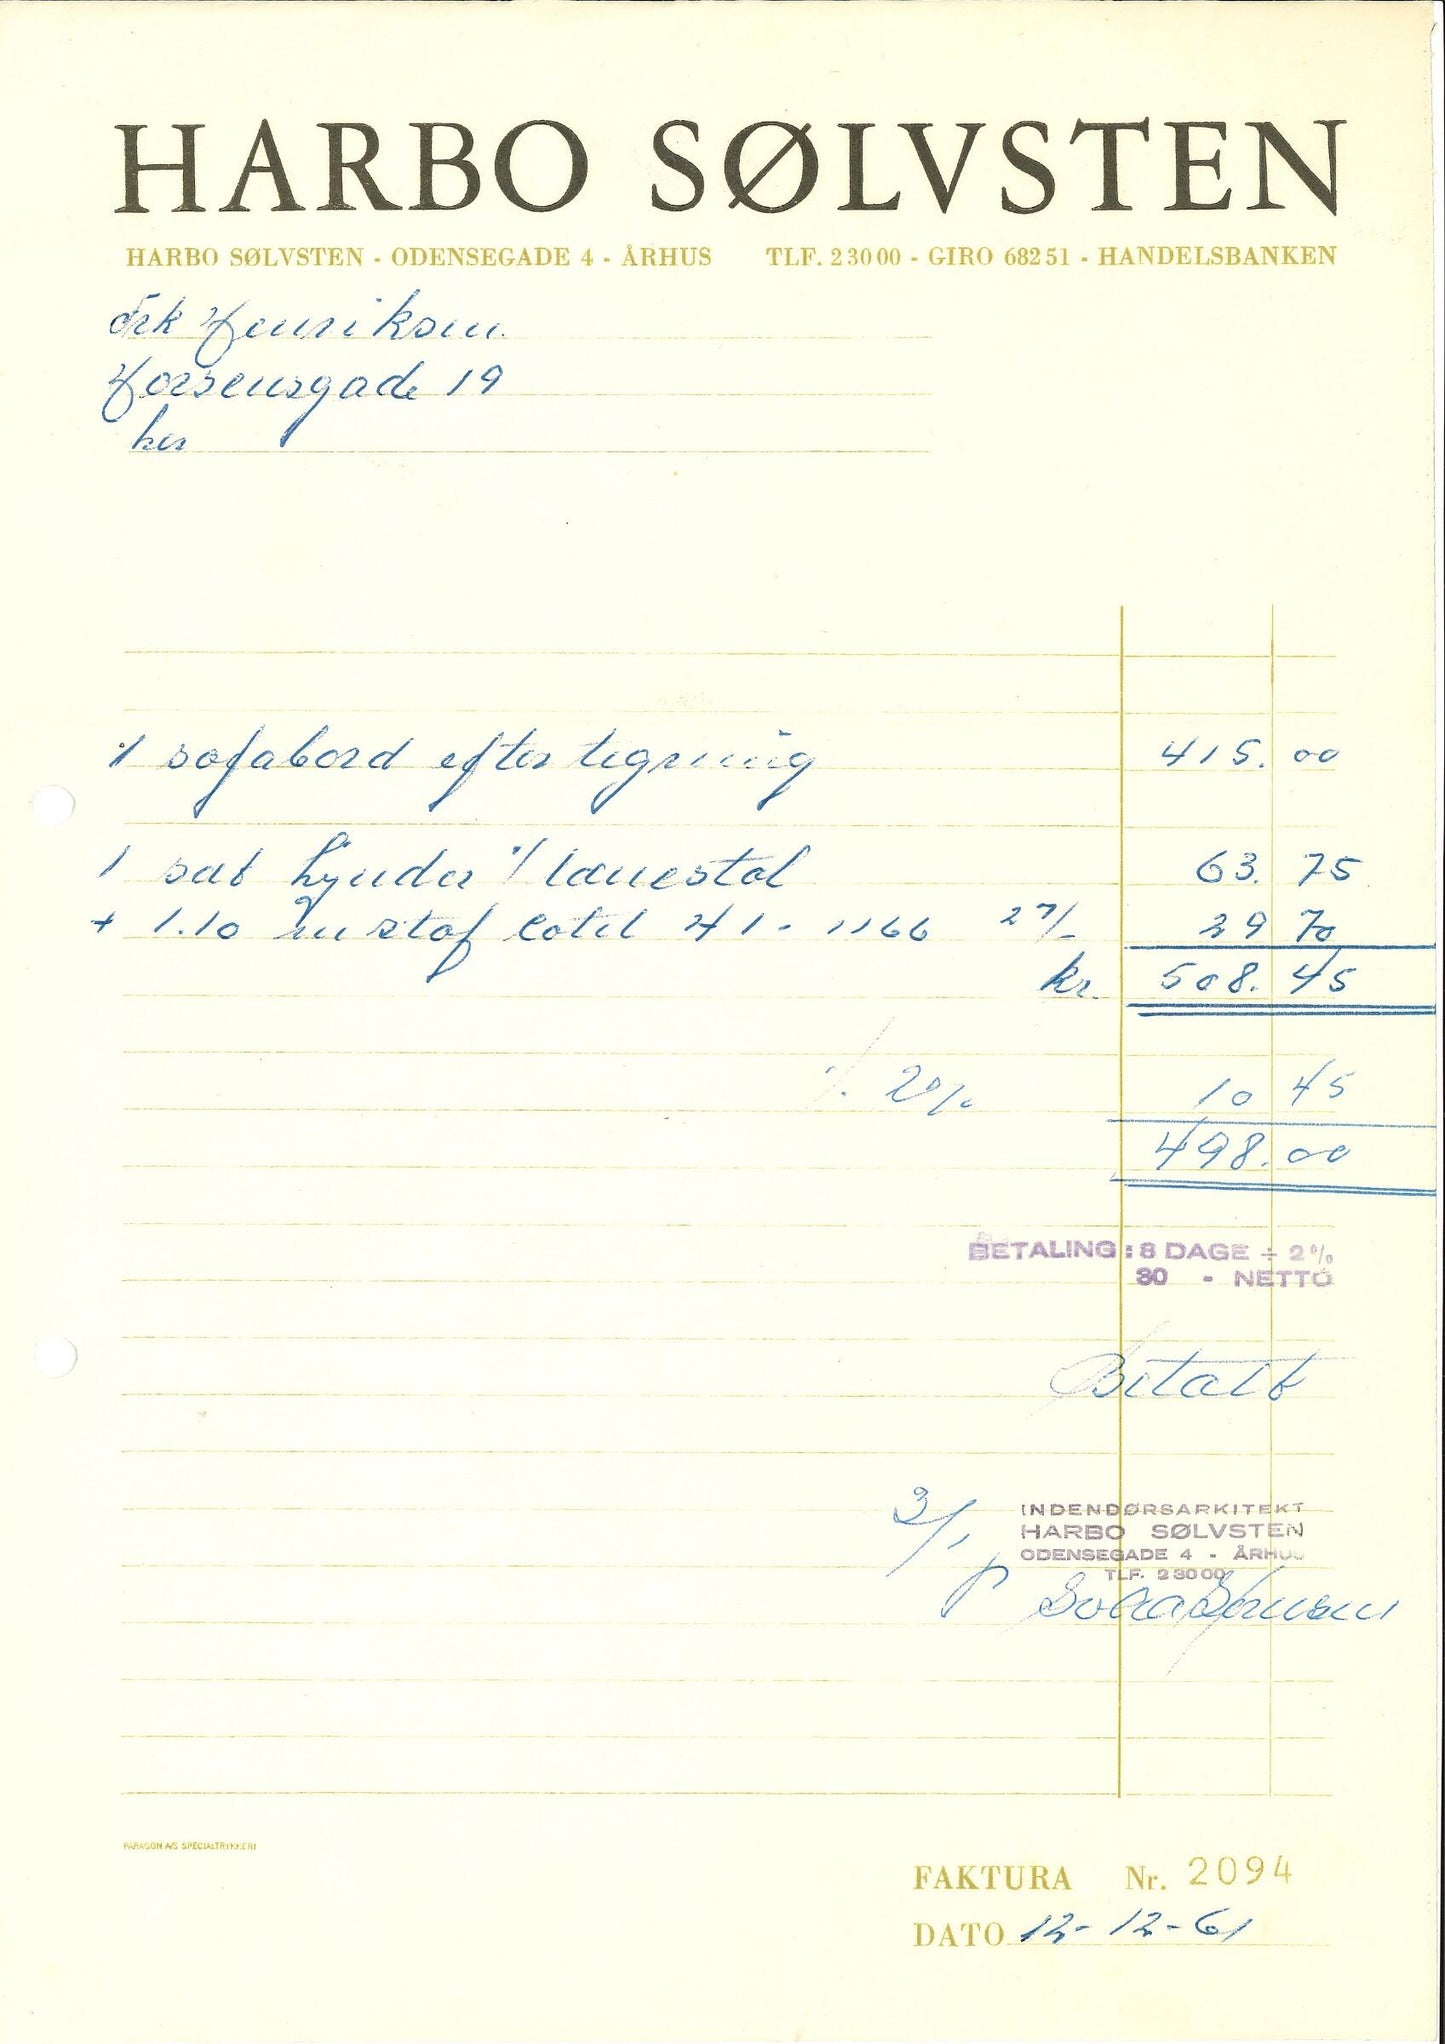 HARBO SØLVSTEN
HARBO SØLVSTEN - ODENSEGADE 4 - ÅRHUS TLF. 23000 - GIRO 68251 - HANDELSBANKEN
Frk Henriksen.
Horsensgade 19
her
1 sofabord efter tegning 415. 00
1 sæt hynder t/ lænestol 63. 75
+ 1.10 m stof Cotil 41 - 1166 27/- 29 70
kr. 508. 45
./. 2% 10 45
498. 00
BETALING : 8 DAGE ÷ 2%
30 - NETTO
Betalt
3/1
INDENDØRSARKITEKT
HARBO SØLVSTEN
ODENSEGADE 4 - ÅRHUS
TLF. 23000
p
PARAGON A/S SPECIALTRYKKERI
FAKTURA Nr. 2094
DATO 12-12-61